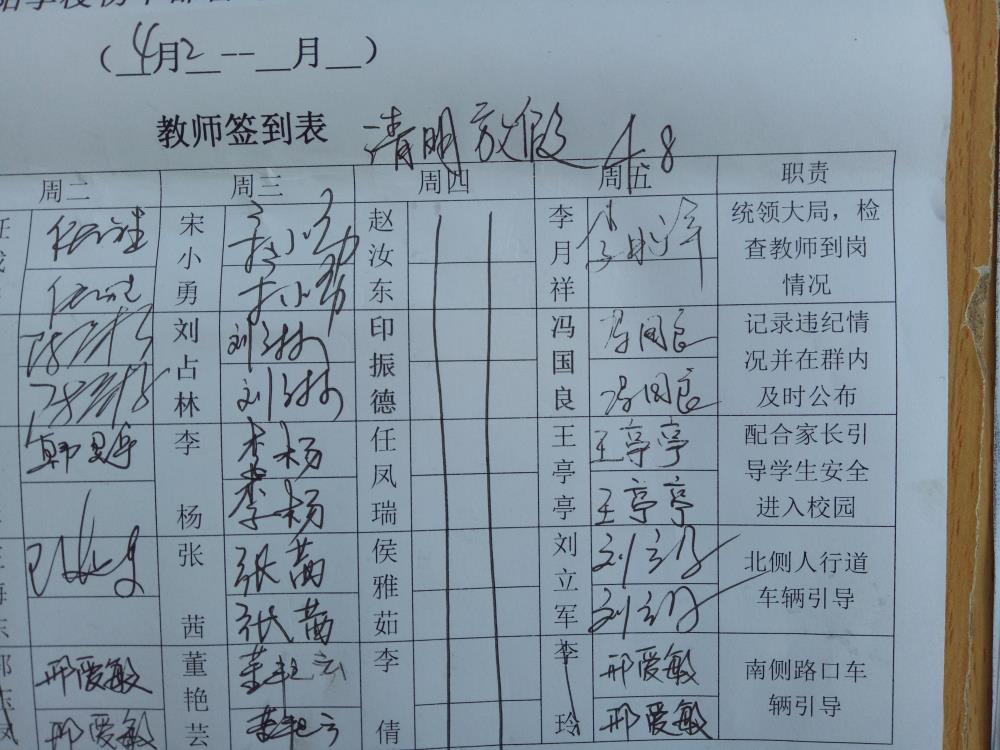 （4月2--月）
教师签到表 清明放假 4.8
周二 周三 周四 周五 职责
宋小勇 赵汝东 李月祥 统领大局，检查教师到岗情况
刘占林 刘占林 刘占林 印振德 冯国良 冯国良 冯国良 记录违纪情况并在群内及时公布
李杨 李杨 李杨 任凤瑞 王亭亭 王亭亭 王亭亭 配合家长引导学生安全进入校园
张茜 张茜 张茜 侯雅茹 刘立军 刘立军 刘立军 北侧人行道车辆引导
邢爱敏 邢爱敏 董艳芸 董艳芸 董艳芸 李倩 李玲 邢爱敏 邢爱敏 南侧路口车辆引导